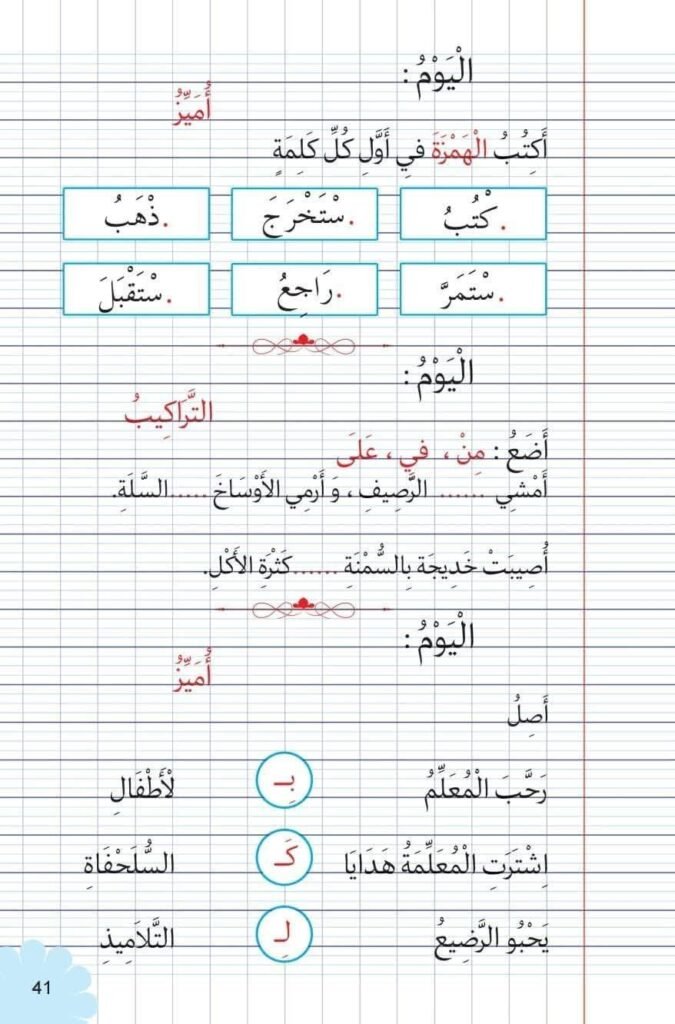 الْيَوْمُ :
أُمَيِّزُ
أَكِتُبُ الْهَمْزَةَ فِي أَوَّلِ كُلِّ كَلِمَةٍ
.كْتُبُ .سْتَخْرَجَ .ذْهَبُ
.سْتَمَرَّ .رَاجِعُ .سْتَقْبَلَ
الْيَوْمُ :
التَّرَاكِيبُ
أَضَعُ : مِنْ ، في ، عَلَى
أَمْشِي ...... الرَّصِيفِ ، وَ أَرْمِي الأَوْسَاخَ .....السَّلَةِ.
أُصِيبَتْ خَدِيجَة بِالسُّمْنَةِ ......كَثْرَةِ الأَكْلِ.
الْيَوْمُ :
أُمَيِّزُ
أَصِلُ
رَحَّبَ الْمُعَلِّمُ بِـ لْأَطْفَالِ
اِشْتَرَتِ الْمُعَلِّمَةُ هَدَايَا كَـ السُّلَحْفَاةِ
يَحْبُو الرَّضِيعُ لِـ التَّلاَمِيذِ
41